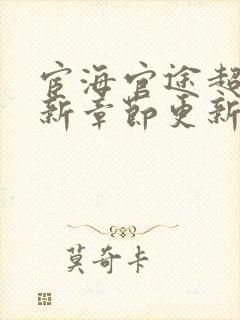 宦海官途超
新章节更新
莫奇卡